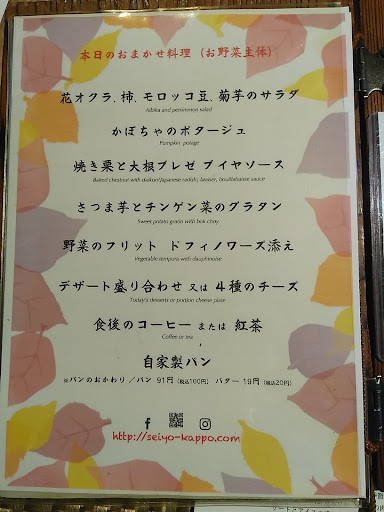 本日のおまかせ料理 (お野菜主体)
花オクラ、柿、モロッコ豆、菊芋のサラダ
Aibika and persimmon salad
かぼちゃのポタージュ
Pumpkin potage
焼き栗と大根ブレゼ ブイヤソース
Baked chestnut with daikon(Japanese radish) beaiser, bouillabaisse sauce
さつま芋とチンゲン菜のグラタン
Sweet potato gratin with bok choy
野菜のフリット ドフィノワーズ添え
Vegetable tempura with dauphinoise
デザート盛り合わせ 又は 4種のチーズ
Today's desserts or portion cheese plate
食後のコーヒー または 紅茶
Coffee or tea
自家製パン
※パンのおかわり/パン 91円(税込100円) バター 19円(税込20円)
http://seiyo-kappo.com